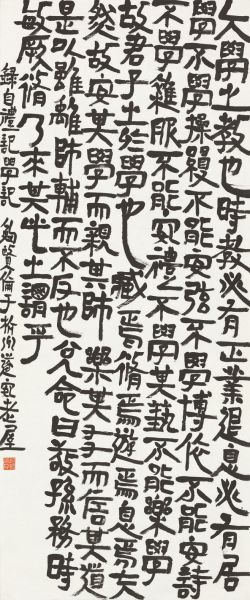 大學之教也時教必有正業退息必有居
學不學操縵不能安弦不學博依不能安詩
不學雜服不能安禮不興其藝不能樂學
故君子之於學也藏焉脩焉遊焉息焉夫
然故安其學而親其師樂其友而信其道
是以雖離師輔而不反也兌命曰敬孫務時
敏厥脩乃來其此之謂乎
錄自禮記學記